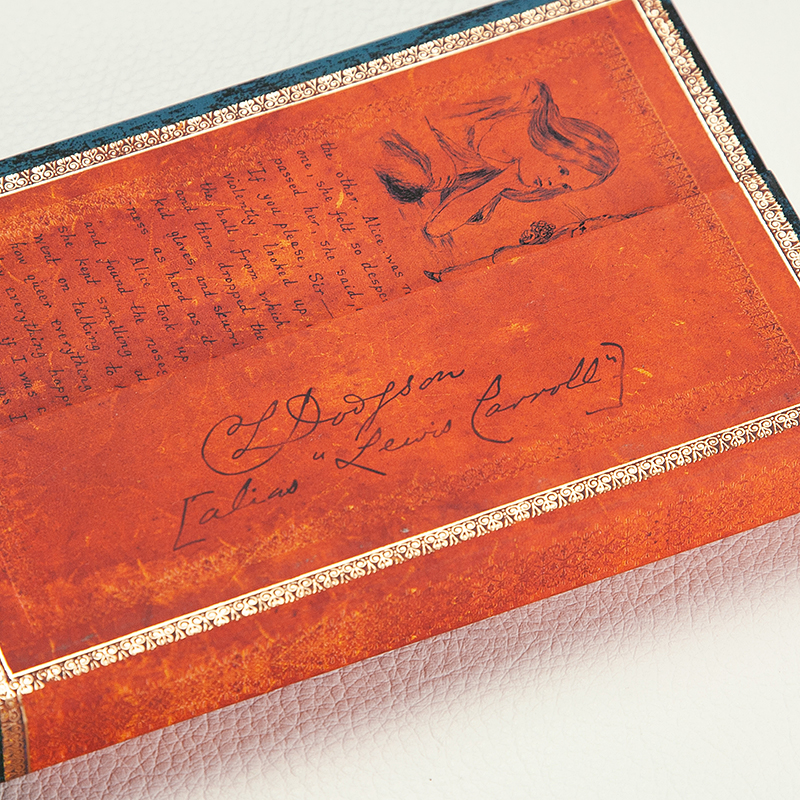 the other. Alice was
one, she felt so
passed her, she said,
"If you please, Sir—
violently, looked up
the hall, from which
and then dropped the
kid gloves, and
ness as hard as it
Alice took up
and found the
she kept smelling at
went on talking to
how queer everything
everything
if I was
was I
CL Dodgson
[alias "Lewis Carroll"]